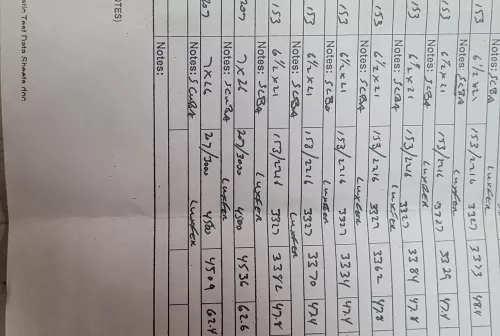 153 6 1/2 x 21 153/2216 3327 3373 48.4
Notes: SCBA LUXFER
153 6 1/2 x 21 153/2216 3327 3329 47.4
Notes: SCBA LUXFER
153 6 1/2 x 21 153/2216 3327 3384 47.8
Notes: SCBA LUXFER
153 6 1/2 x 21 153/2216 3327 3362 47.8
Notes: SCBA LUXFER
153 6 1/2 x 21 153/2216 3327 3334 47.4
Notes: SCBA
153 6 1/2 x 21 153/2216 3327 3370 47.4
Notes: SCBA LUXFER
153 6 1/2 x 21 153/2216 3327 3342 47.8
Notes: SCBA LUXFER
207 7 x 26 207/3000 4500 4536 62.6
Notes: SCUBA LUXFER
207 7 x 26 207/3000 4500 4509 62.4
Notes: SCUBA LUXFER
Notes:
OTES)
Test Data Sheets